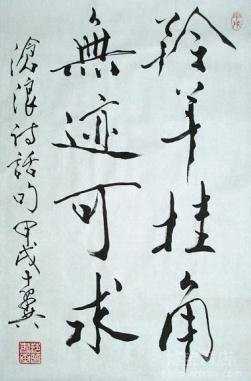 羚羊挂角
無迹可求
滄浪诗話句 甲戌士翼